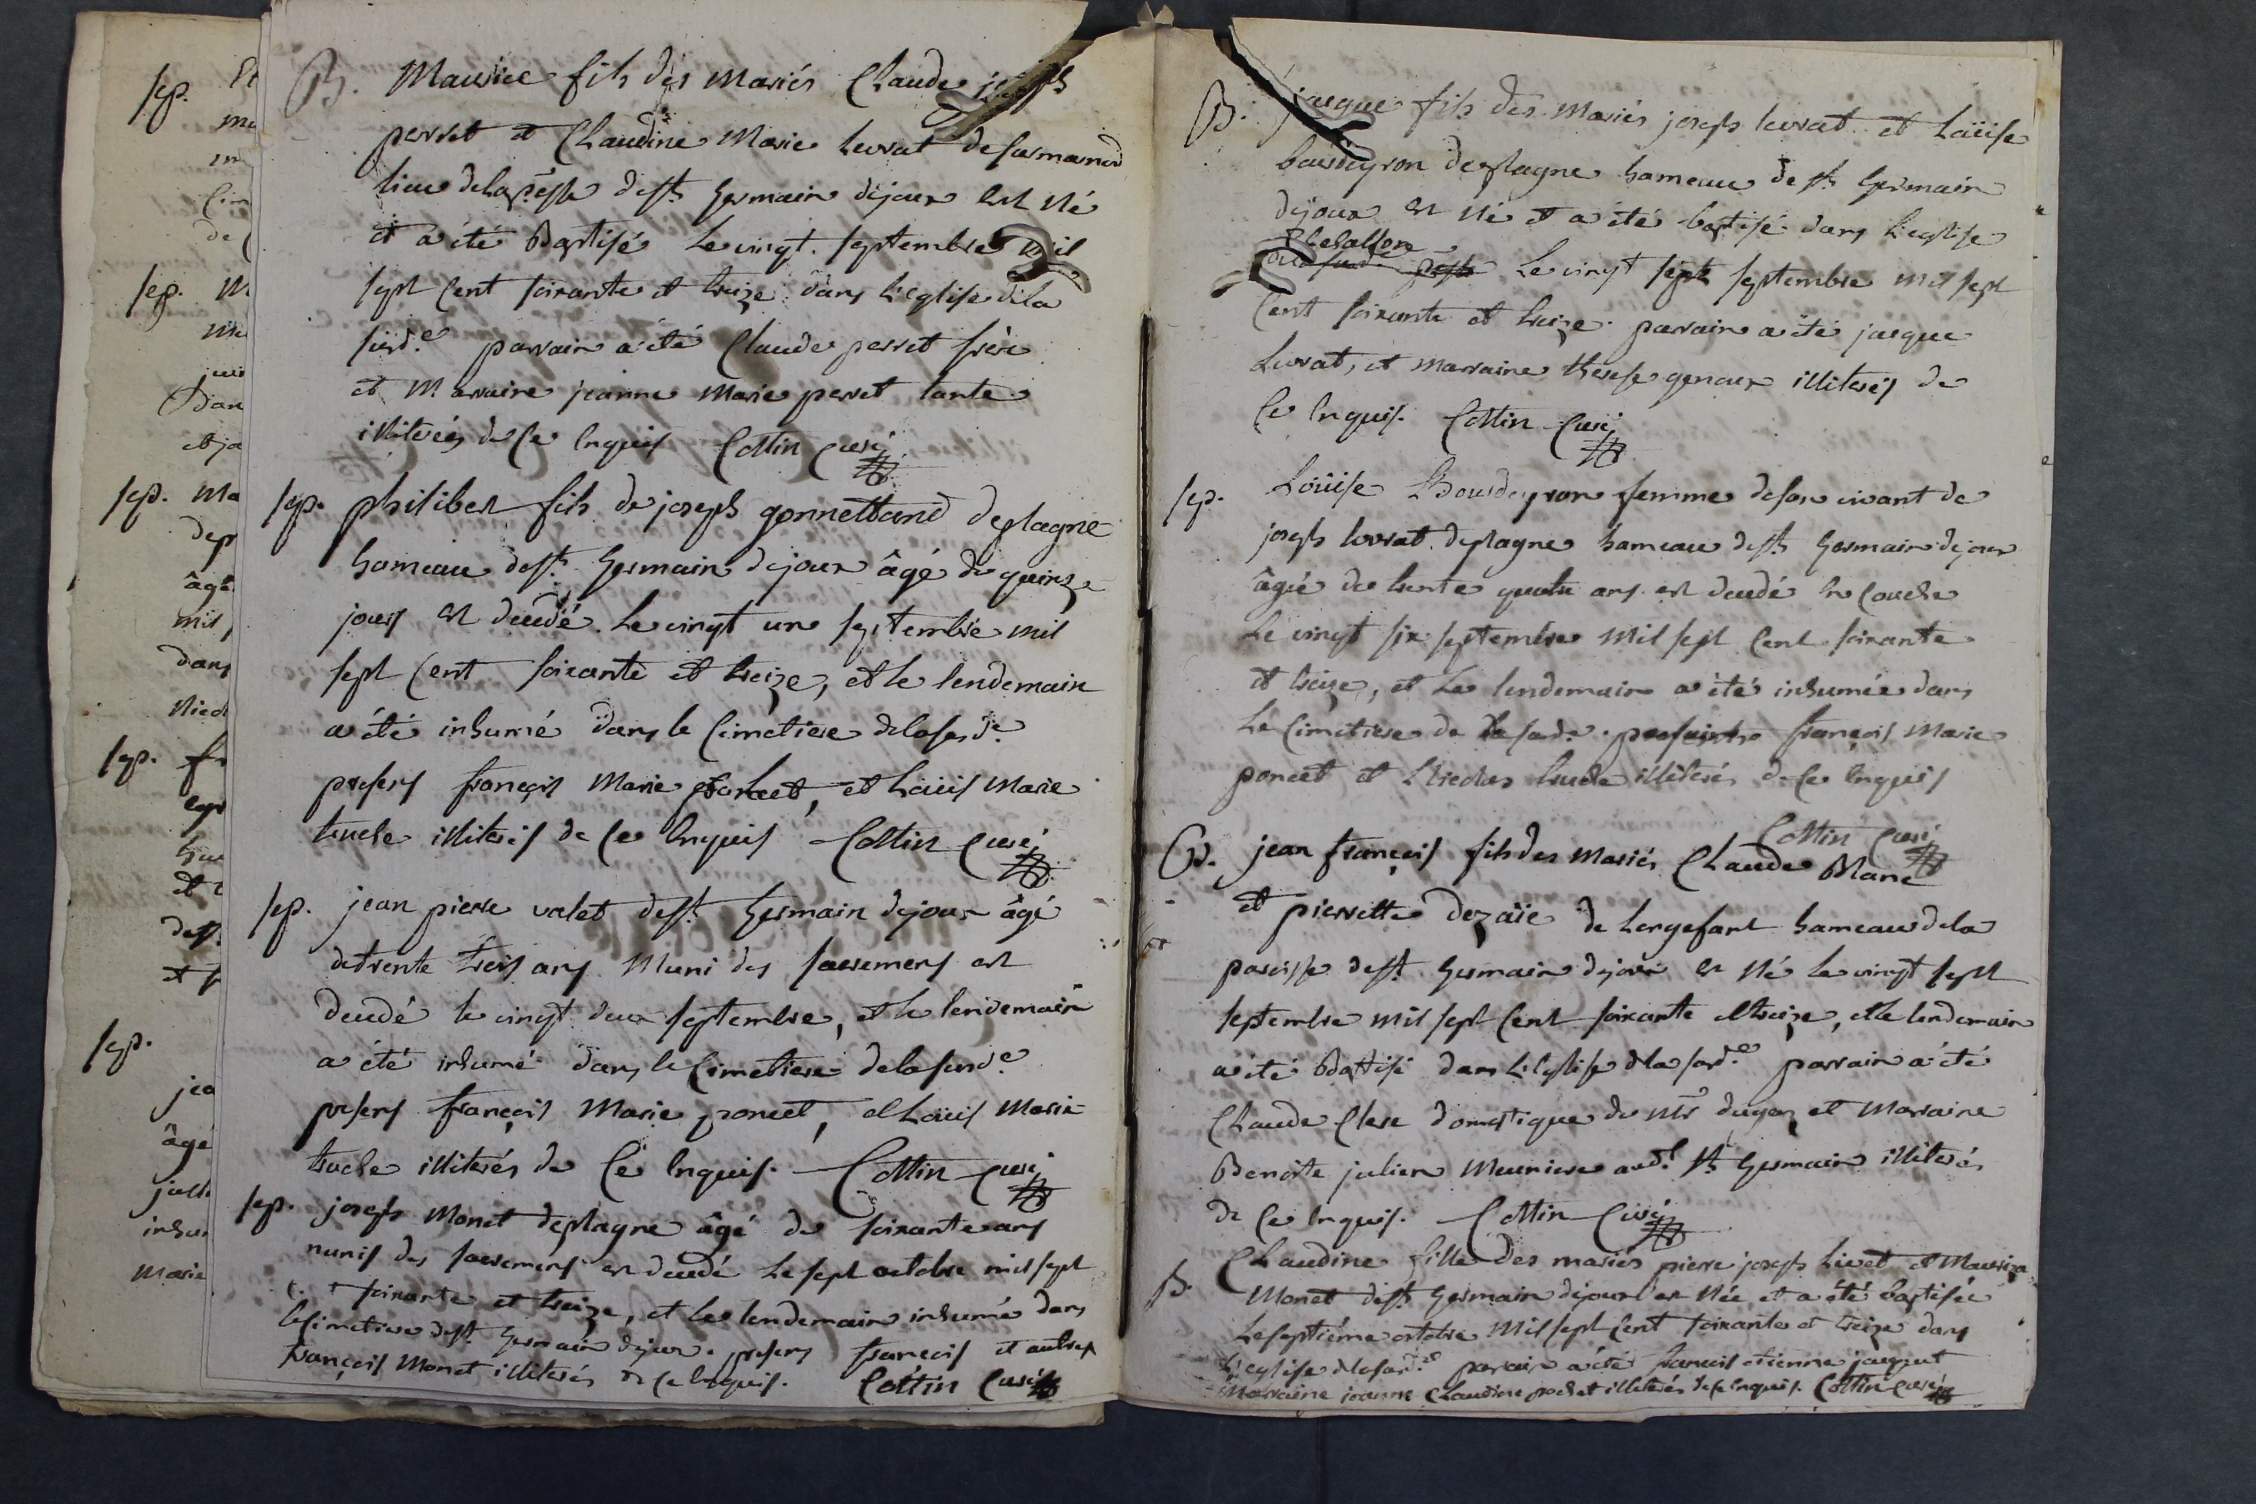 B. Maurice fils des mariés Claude
perret et Claudine Marie Levrat
lieu de la p.esse de st. Germain dejoux est né
et a été Baptisé le vingt septembre mil
sept Cent soixante et treize dans L'eglise de la
susd.e parrain a été Claude perret frère
et Marraine jeanne Marie perret tante
illiterés de Ce Enquis Cottin Curé
sep. philibert fils de joseph deplagne
hameau de st. Germain dejoux âgé de quinze
jours est decedé le vingt un septembre mil
sept Cent soixante et treize, et le lendemain
a été inhumé dans le Cimetiere de la susd.e
presens françois Marie poncet, et Loüis Marie
truche illiterés de Ce Enquis Cottin Curé
sep. jean pierre valet de st. Germain dejoux âgé
de trente trois ans Muni des sacremens est
decedé le vingt deux septembre, et le lendemain
a été inhumé dans le Cimetiere de la susd.e
presens françois Marie poncet, et Loüis Marie
truche illiterés de Ce Enquis. Cottin Curé
sep. joseph Monet deplagne âgé de soixante ans
munis des sacremens est decedé le sept octobre mil sept
soixante et treize, et le lendemain inhumé dans
le Cimetiere de st. Germain dejoux. presens françois et autre
françois Monet illiterés de Ce Enquis. Cottin Curé
B. jacque fils des Mariés joseph levrat et Loüise
bourdeyron deplagne hameau de st. Germain
dejoux est né et a été baptisé dans L'eglise
le vingt sept septembre mil sept
Cent soixante et treize. parrain a été jacque
Levrat, et marraine therese genoux illiterés de
Ce Enquis. Cottin Curé
sep. Loüise Bourdeyron femme de son vivant de
joseph levrat deplagne hameau de st. Germain dejoux
âgée de trente quatre ans est decedé En Couche
Le vingt six septembre Mil sept Cent soixante
et treize, et Le lendemain a été inhumée dans
Le Cimetiere de la susd.e françois Marie
poncet et Nicolas truche illiterés de Ce Enquis
Cottin Curé
B. jean françois fils des mariés Claude Blanc
et pierrette dezaïe de Longefant hameau de la
paroisse de st. Germain dejoux est né Le vingt sept
septembre mil sept Cent soixante et treize, et le lendemain
a été Baptisé dans L'Eglise de la susd.e parrain a été
Claude Clerc domestique de Mr. dugas, et Marraine
Benoite julien Meuniere aud.t st. Germain illiterés
de Ce Enquis. Cottin Curé
B. Claudine fille des mariés pierre joseph Livet et Mauriza
Monet de st. Germain dejoux est Née et a été baptisée
Le septiéme octobre Mil sept Cent soixante et treize dans
L'eglise de la susd.e parrain a été francois etienne jacquet
Marraine jeanne Claudine prochet illiterés de Ce Enquis. Cottin Curé